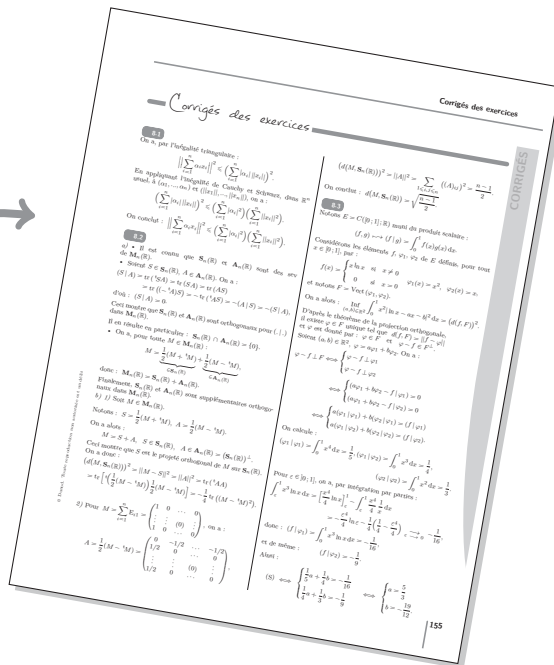 Corrigés des exercices
Corrigés des exercices
CORRIGÉS
8-1
On a, par l'inégalité triangulaire :
$\left\|\sum_{i=1}^{n} \alpha_i x_i\right\|^2 \leqslant \left(\sum_{i=1}^{n} |\alpha_i| \, \|x_i\|\right)^2$.
En appliquant l'inégalité de Cauchy et Schwarz, dans $\mathbb{R}^n$
usuel, à $(\alpha_1,...,\alpha_n)$ et $(\|x_1\|,...,\|x_n\|)$, on a :
$\left(\sum_{i=1}^{n} |\alpha_i| \, \|x_i\|\right)^2 \leqslant \left(\sum_{i=1}^{n} |\alpha_i|^2\right)\left(\sum_{i=1}^{n} \|x_i\|^2\right)$.
On conclut : $\left\|\sum_{i=1}^{n} \alpha_i x_i\right\|^2 \leqslant \left(\sum_{i=1}^{n} |\alpha_i|^2\right)\left(\sum_{i=1}^{n} \|x_i\|^2\right)$.
8-2
a) • Il est connu que $\mathbf{S}_n(\mathbb{R})$ et $\mathbf{A}_n(\mathbb{R})$ sont des sev
de $\mathbf{M}_n(\mathbb{R})$.
• Soient $S \in \mathbf{S}_n(\mathbb{R})$, $A \in \mathbf{A}_n(\mathbb{R})$. On a :
$(S \mid A) = \mathrm{tr}\,({}^tSA) = \mathrm{tr}\,(SA) = \mathrm{tr}\,(AS)$
$= \mathrm{tr}\,((-{}^tA)S) = -\mathrm{tr}\,({}^tAS) = -(A \mid S) = -(S \mid A)$,
d'où : $(S \mid A) = 0$.
Ceci montre que $\mathbf{S}_n(\mathbb{R})$ et $\mathbf{A}_n(\mathbb{R})$ sont orthogonaux pour $(. \mid .)$
dans $\mathbf{M}_n(\mathbb{R})$.
Il en résulte en particulier : $\mathbf{S}_n(\mathbb{R}) \cap \mathbf{A}_n(\mathbb{R}) = \{0\}$.
• On a, pour toute $M \in \mathbf{M}_n(\mathbb{R})$ :
$M = \underbrace{\frac{1}{2}(M + {}^tM)}_{\in \mathbf{S}_n(\mathbb{R})} + \underbrace{\frac{1}{2}(M - {}^tM)}_{\in \mathbf{A}_n(\mathbb{R})}$,
donc : $\mathbf{M}_n(\mathbb{R}) = \mathbf{S}_n(\mathbb{R}) + \mathbf{A}_n(\mathbb{R})$.
Finalement, $\mathbf{S}_n(\mathbb{R})$ et $\mathbf{A}_n(\mathbb{R})$ sont supplémentaires orthogo-
naux dans $\mathbf{M}_n(\mathbb{R})$.
b) 1) Soit $M \in \mathbf{M}_n(\mathbb{R})$.
Notons : $S = \frac{1}{2}(M + {}^tM)$, $A = \frac{1}{2}(M - {}^tM)$.
On a alors :
$M = S + A$, $S \in \mathbf{S}_n(\mathbb{R})$, $A \in \mathbf{A}_n(\mathbb{R}) = (\mathbf{S}_n(\mathbb{R}))^{\perp}$.
Ceci montre que $S$ est le projeté orthogonal de $M$ sur $\mathbf{S}_n(\mathbb{R})$.
On a donc :
$\left(d(M, \mathbf{S}_n(\mathbb{R}))\right)^2 = \|M - S\|^2 = \|A\|^2 = \mathrm{tr}\,({}^tAA)$
$= \mathrm{tr}\left[{}^t\left(\frac{1}{2}(M - {}^tM)\right)\frac{1}{2}(M - {}^tM)\right] = -\frac{1}{4}\mathrm{tr}\,((M - {}^tM)^2)$.
2) Pour $M = \sum_{i=1}^{n} \mathrm{E}_{i1} = \begin{pmatrix} 1 & 0 & \cdots & 0 \\ \vdots & \vdots & & \vdots \\ \vdots & \vdots & (0) & \vdots \\ 1 & 0 & \cdots & 0 \end{pmatrix}$, on a :
$A = \frac{1}{2}(M - {}^tM) = \begin{pmatrix} 0 & -1/2 & \cdots & -1/2 \\ 1/2 & 0 & \cdots & 0 \\ \vdots & \vdots & (0) & \vdots \\ 1/2 & 0 & \cdots & 0 \end{pmatrix}$,
$\left(d(M, \mathbf{S}_n(\mathbb{R}))\right)^2 = \|A\|^2 = \sum_{1 \leqslant i,j \leqslant n} ((A)_{ij})^2 = \frac{n-1}{2}$.
On conclut : $d(M, \mathbf{S}_n(\mathbb{R})) = \sqrt{\frac{n-1}{2}}$.
8-3
Notons $E = C([0;1];\mathbb{R})$ muni du produit scalaire :
$(f,g) \longmapsto (f \mid g) = \int_0^1 f(x)g(x)\,\mathrm{d}x$.
Considérons les éléments $f$, $\varphi_1$, $\varphi_2$ de $E$ définis, pour tout
$x \in [0;1]$, par :
$f(x) = \begin{cases} x \ln x & \text{si } x \neq 0 \\ 0 & \text{si } x = 0 \end{cases}$ $\varphi_1(x) = x^2$, $\varphi_2(x) = x$.
et notons $F = \mathrm{Vect}\,(\varphi_1, \varphi_2)$.
On a alors : $\inf_{(a,b) \in \mathbb{R}^2} \int_0^1 x^2(\ln x - ax - b)^2\,\mathrm{d}x = (d(f,F))^2$.
D'après le théorème de la projection orthogonale,
il existe $\varphi \in F$ unique tel que $d(f,F) = \|f - \varphi\|$
et $\varphi$ est donné par : $\varphi \in F$ et $\varphi - f \in F^{\perp}$.
Soient $(a,b) \in \mathbb{R}^2$, $\varphi = a\varphi_1 + b\varphi_2$. On a :
$\varphi - f \perp F \iff \begin{cases} \varphi - f \perp \varphi_1 \\ \varphi - f \perp \varphi_2 \end{cases}$
$\iff \begin{cases} (a\varphi_1 + b\varphi_2 - f \mid \varphi_1) = 0 \\ (a\varphi_1 + b\varphi_2 - f \mid \varphi_2) = 0 \end{cases}$
$\iff \begin{cases} a(\varphi_1 \mid \varphi_1) + b(\varphi_2 \mid \varphi_1) = (f \mid \varphi_1) \\ a(\varphi_1 \mid \varphi_2) + b(\varphi_2 \mid \varphi_2) = (f \mid \varphi_2). \end{cases}$
On calcule :
$(\varphi_1 \mid \varphi_1) = \int_0^1 x^4\,\mathrm{d}x = \frac{1}{5}$, $(\varphi_1 \mid \varphi_2) = \int_0^1 x^3\,\mathrm{d}x = \frac{1}{4}$,
$(\varphi_2 \mid \varphi_2) = \int_0^1 x^2\,\mathrm{d}x = \frac{1}{3}$,
pour $\varepsilon \in ]0;1]$, on a, par intégration par parties :
$\int_\varepsilon^1 x^3 \ln x\,\mathrm{d}x = \left[\frac{x^4}{4} \ln x\right]_\varepsilon^1 - \int_\varepsilon^1 \frac{x^4}{4}\frac{1}{x}\,\mathrm{d}x$
$= -\frac{\varepsilon^4}{4} \ln \varepsilon - \frac{1}{4}\left(\frac{1}{4} - \frac{\varepsilon^4}{4}\right) \underset{\varepsilon \to 0}{\longrightarrow} -\frac{1}{16}$,
donc : $(f \mid \varphi_1) = \int_0^1 x^3 \ln x\,\mathrm{d}x = -\frac{1}{16}$,
et de même : $(f \mid \varphi_2) = -\frac{1}{9}$.
Ainsi :
(S) $\iff \begin{cases} \frac{1}{5}a + \frac{1}{4}b = -\frac{1}{16} \\ \frac{1}{4}a + \frac{1}{3}b = -\frac{1}{9} \end{cases} \iff \begin{cases} a = \frac{5}{3} \\ b = -\frac{19}{12}. \end{cases}$
155